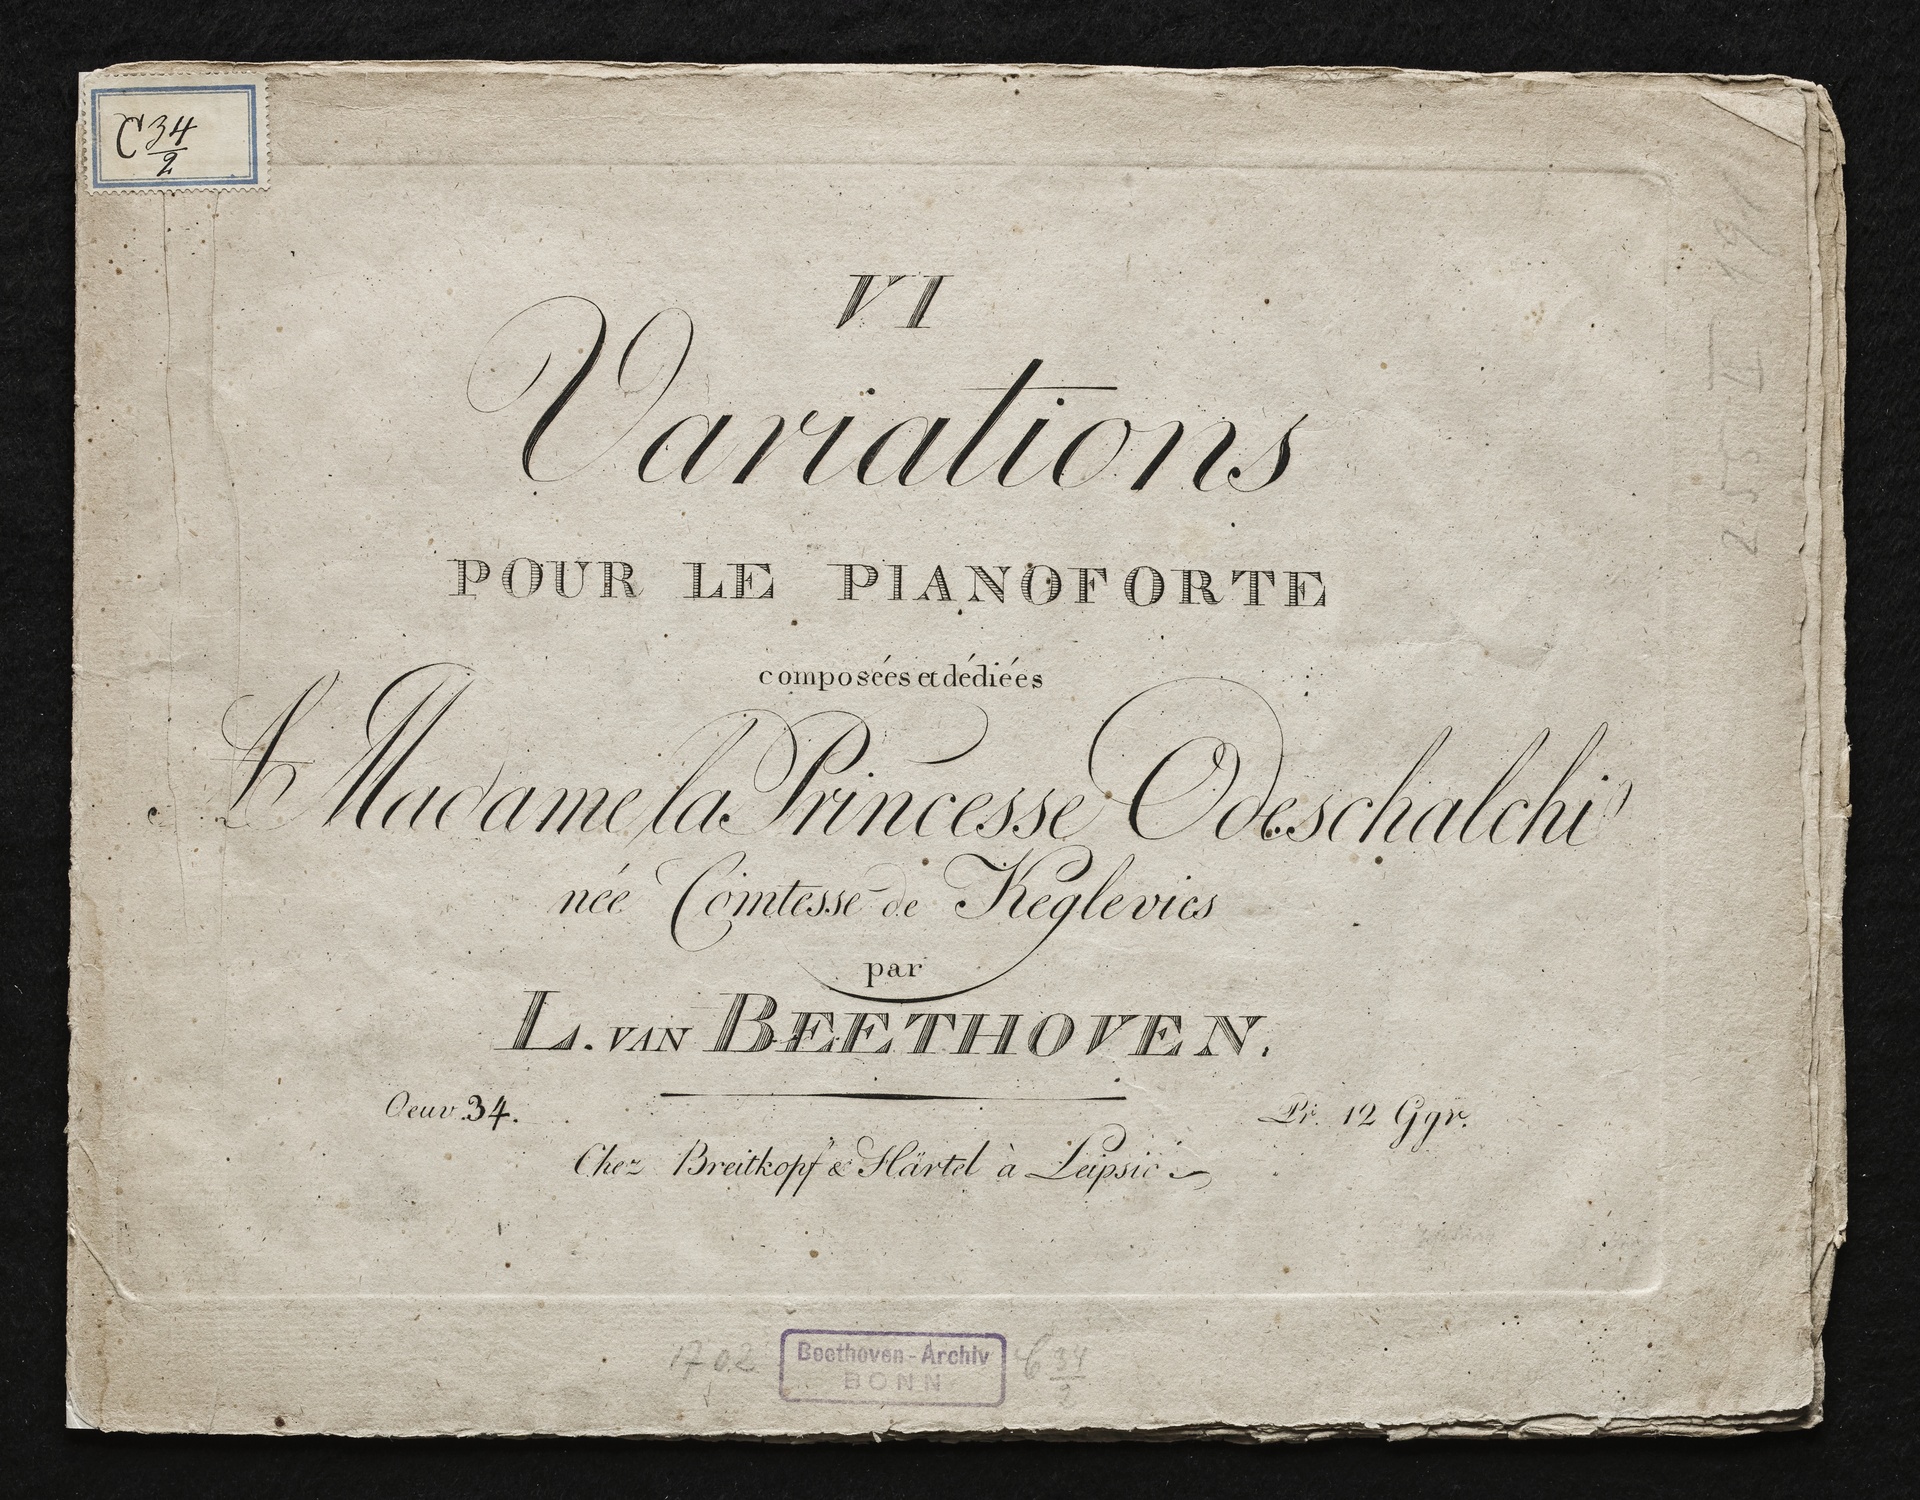 C 34/2
VI
Variations
POUR LE PIANOFORTE
composées et dédiées
A Madame la Princesse Odeschalchi
née Comtesse de Keglevics
par
L. VAN BEETHOVEN.
Oeuv. 34.
Pr. 12 Ggr.
Chez Breitkopf & Härtel à Leipsic
1702
Beethoven-Archiv
BONN
C 34/2